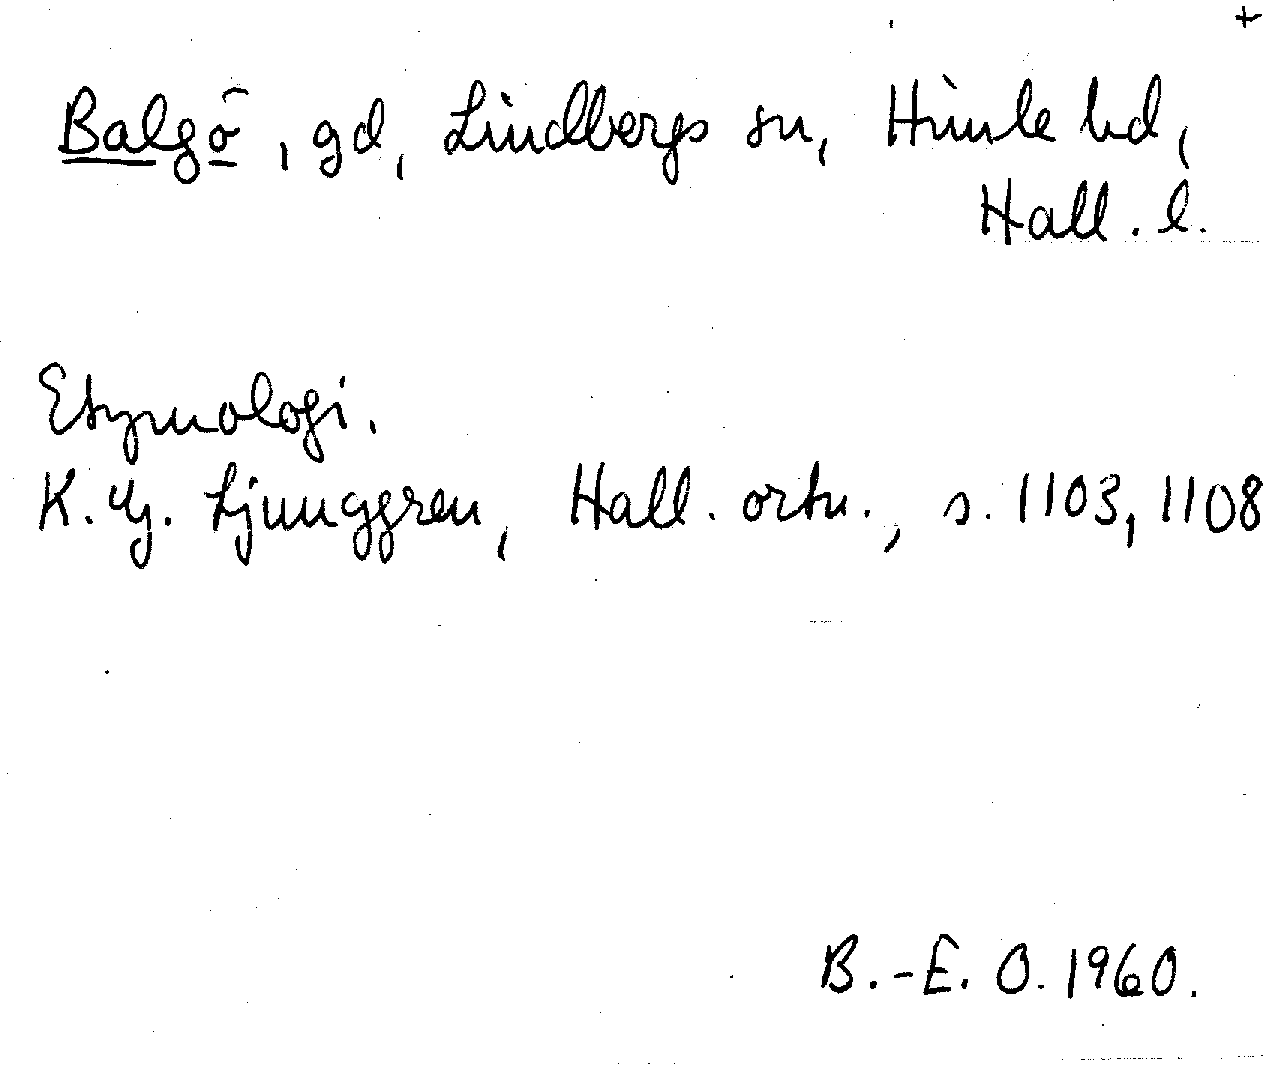 +
Balgö, gd, Lindbergs sn, Himle hd,
Hall. l.
Etymologi.
K. G. Ljunggren, Hall. ortn., s. 1103, 1108
B.-E. O. 1960.